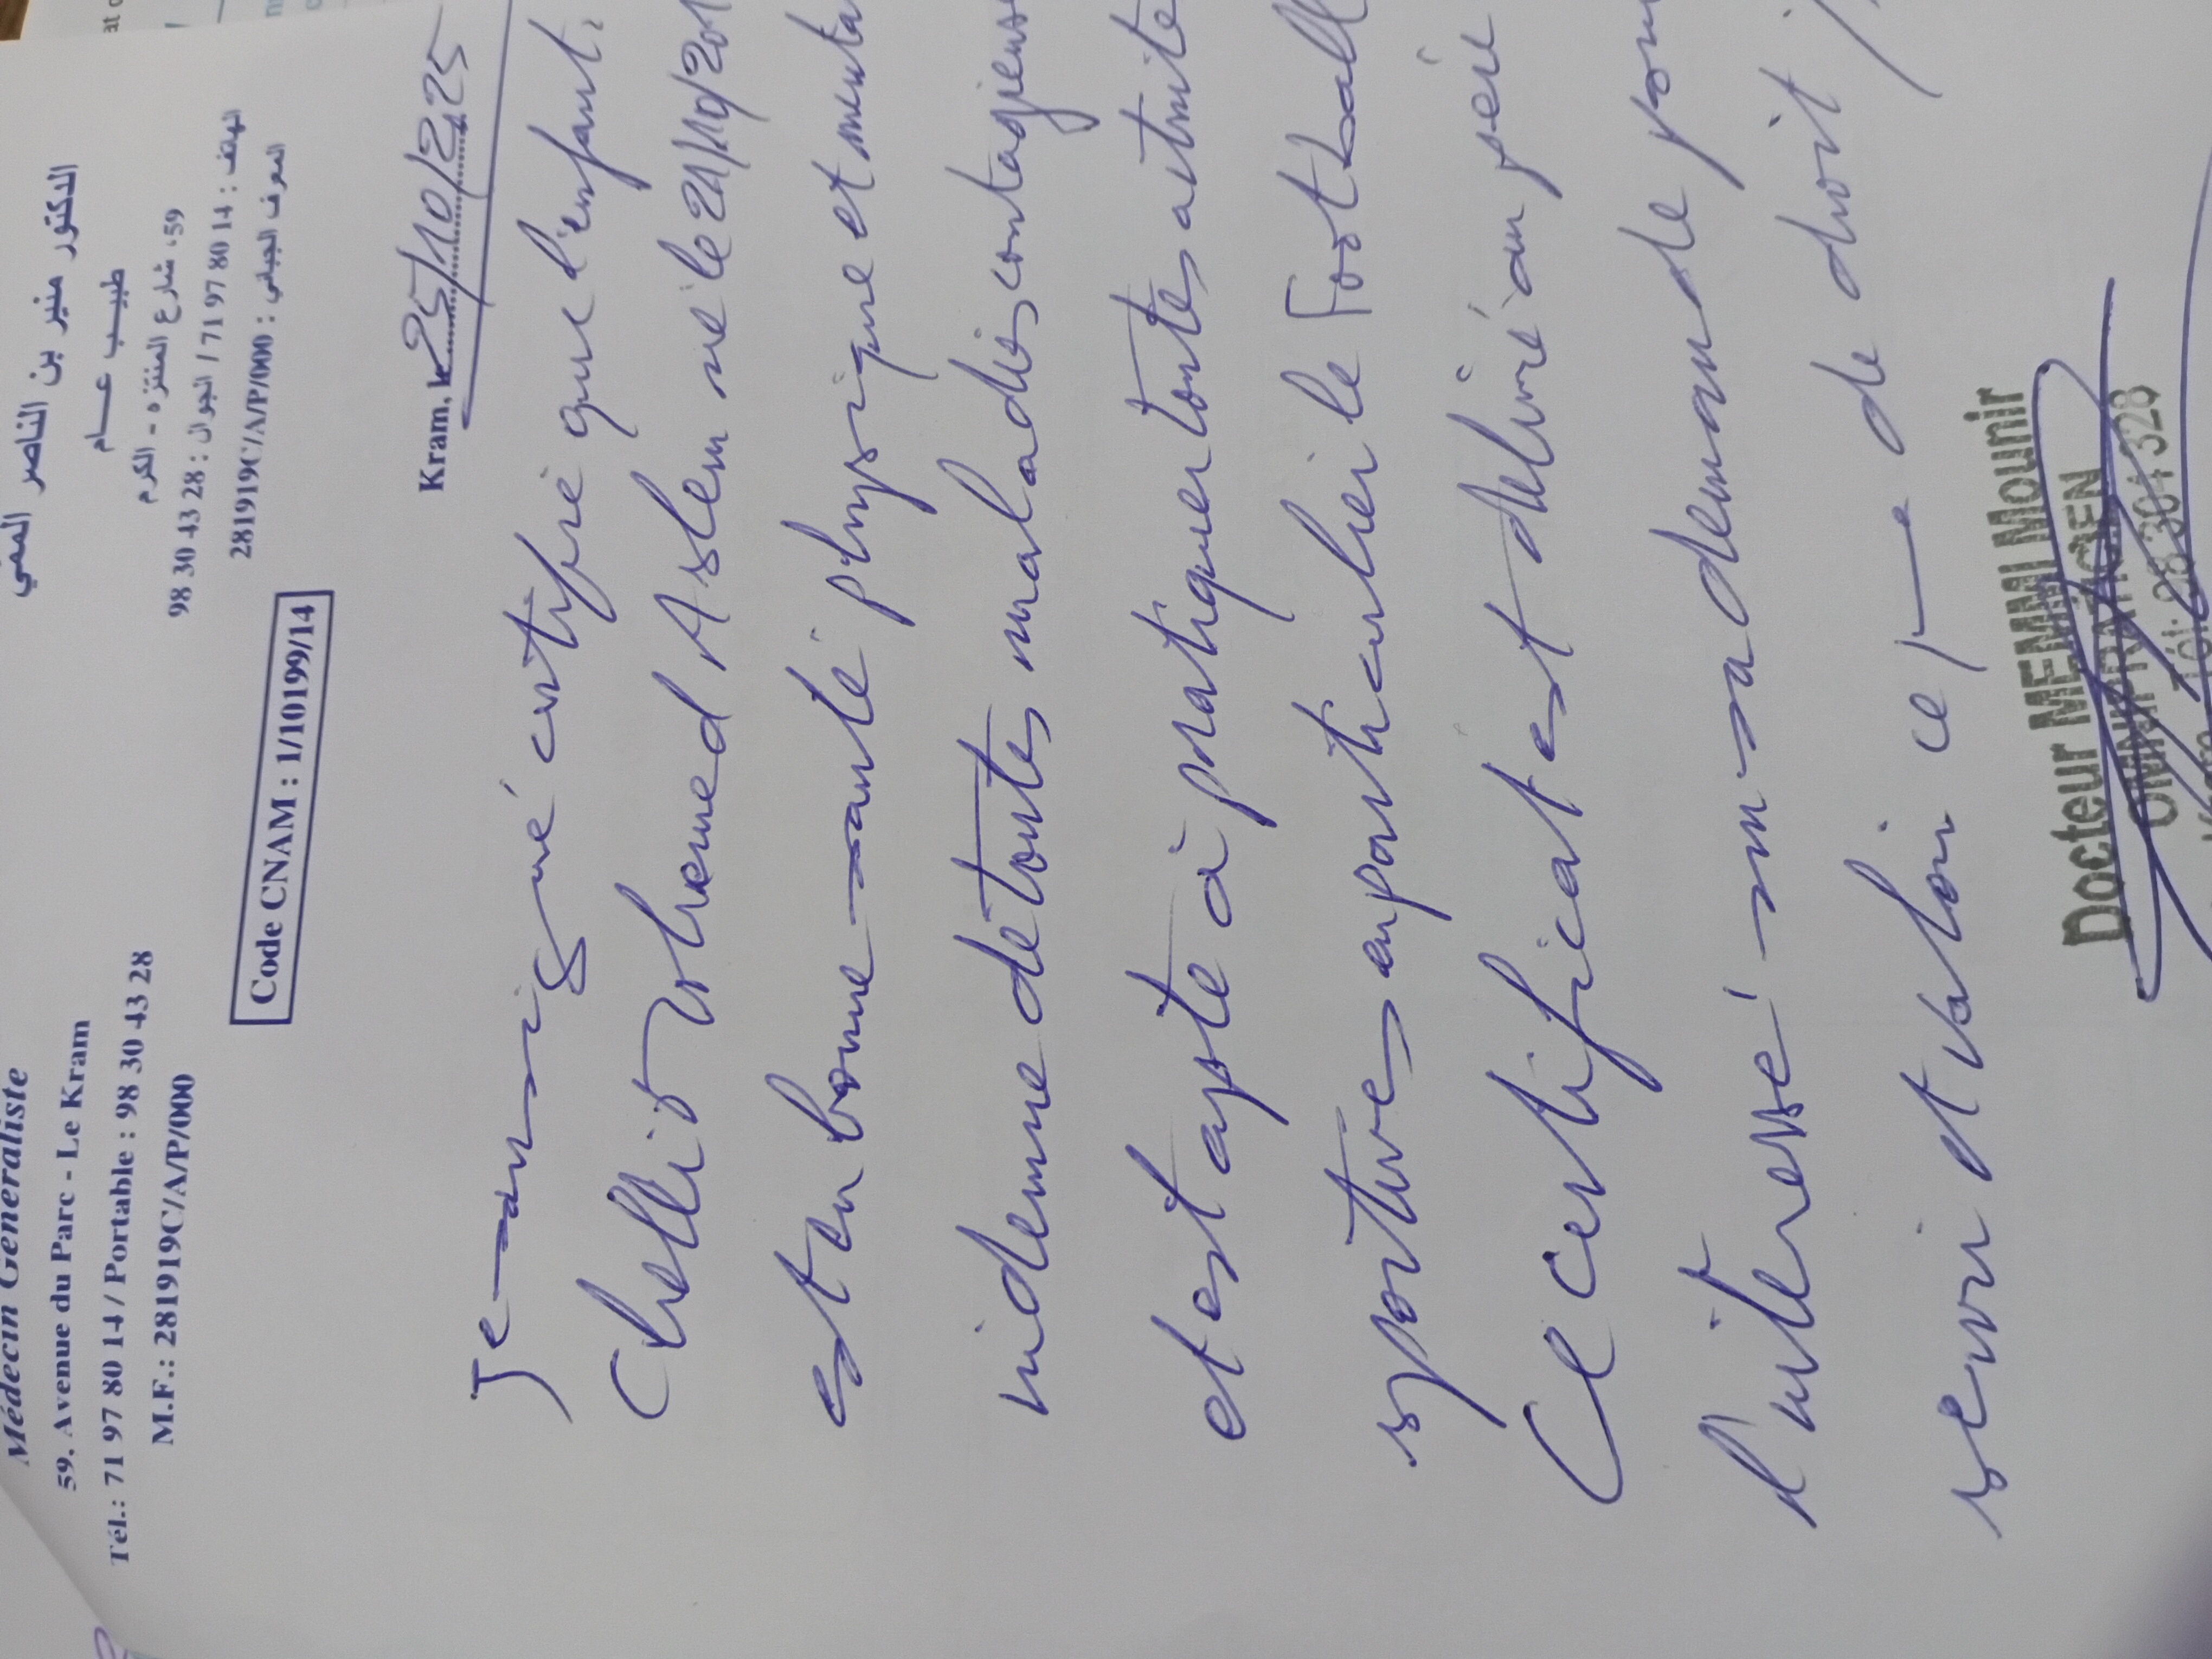 Médecin Généraliste
59. Avenue du Parc - Le Kram
Tél.: 71 97 80 14 / Portable : 98 30 43 28
M.F.: 281919C/A/P/000
الدكتور منير بن الناصر الممّي
طبيب عام
59، شارع المنتزه - الكرم
الهاتف : 71 97 80 14 / الجوال : 98 30 43 28
المعرف الجبائي : 281919C/A/P/000
Code CNAM : 1/10199/14
Kram, le 25/10/2.25
Je sousigné certifié que l'enfant.
Mohemed Aslem né le 21/10/201
est en bonne santé physique et menta
indemne de toutes maladies contagieus
et est apte à pratiquer toutes activité
sportives en particulier le Football
Ce certificat est délivré au père
l'intéressé sur sa demande pour
servir et valoir ce que de droit /
Docteur MEMMI Mounir
OMNIPRATICIEN
Kram Tél: 98 304 328